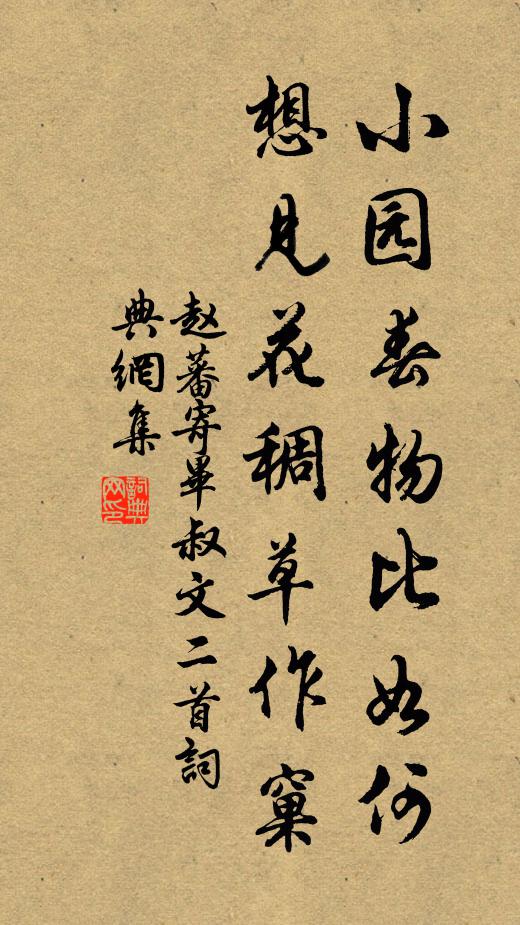 小园春物比如何
想见花稠草作窠
赵蕃寄畢叔文二首詞
典網集
詞典网印